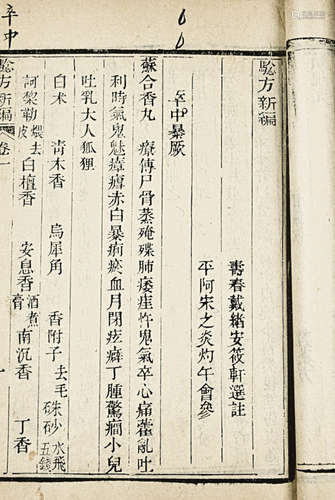 驗方新編
青春戴緒安筱軒選註
平阿宋之炎灼午會參
卒中暴厥
蘇合香丸 療傳尸骨蒸殗殜肺痿疰忤鬼氣卒心痛藿亂吐
利時氣鬼魅瘴瘧赤白暴痢瘀血月閉痃癖丁腫驚癇小兒
吐乳大人狐狸
白朮 靑木香 烏犀角 香附子去毛 硃砂水飛五錢
訶黎勒煨去皮 白檀香 安息香酒煮膏 南沉香 丁香
驗方新編 卷一
卒中